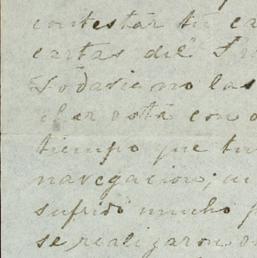 contestar tu
cartas del
Todavia no las
está con
tiempo que tu
navegacion;
sufrido mucho
se realizaron